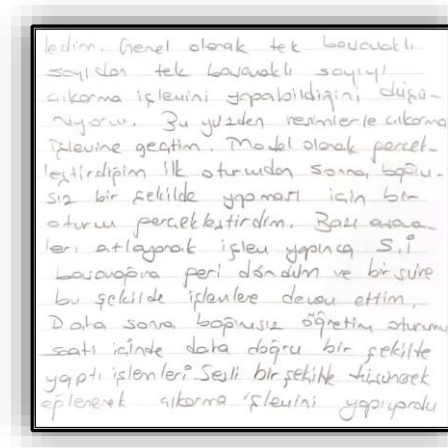 ledim. Genel olarak tek basamaklı
sayıdan tek basamaklı sayıyı
çıkarma işlemini yapabildiğini düşü-
nüyorum. Bu yüzden resimlerle çıkarma
işlemine geçtim. Model olarak gerçek-
leştirdiğim ilk oturumdan sonra, bağım-
sız bir şekilde yapması için bir
oturum gerçekleştirdim. Bazı
ları atlayarak işlem yapınca S.İ
basamağına geri döndüm ve bir süre
bu şekilde işlemlere devam ettim.
Daha sonra bağımsız öğretim oturumu
saati içinde daha doğru bir şekilde
yaptı işlemleri. Sesli bir şekilde düşünerek
eğlenerek çıkarma işlemini yapıyordu